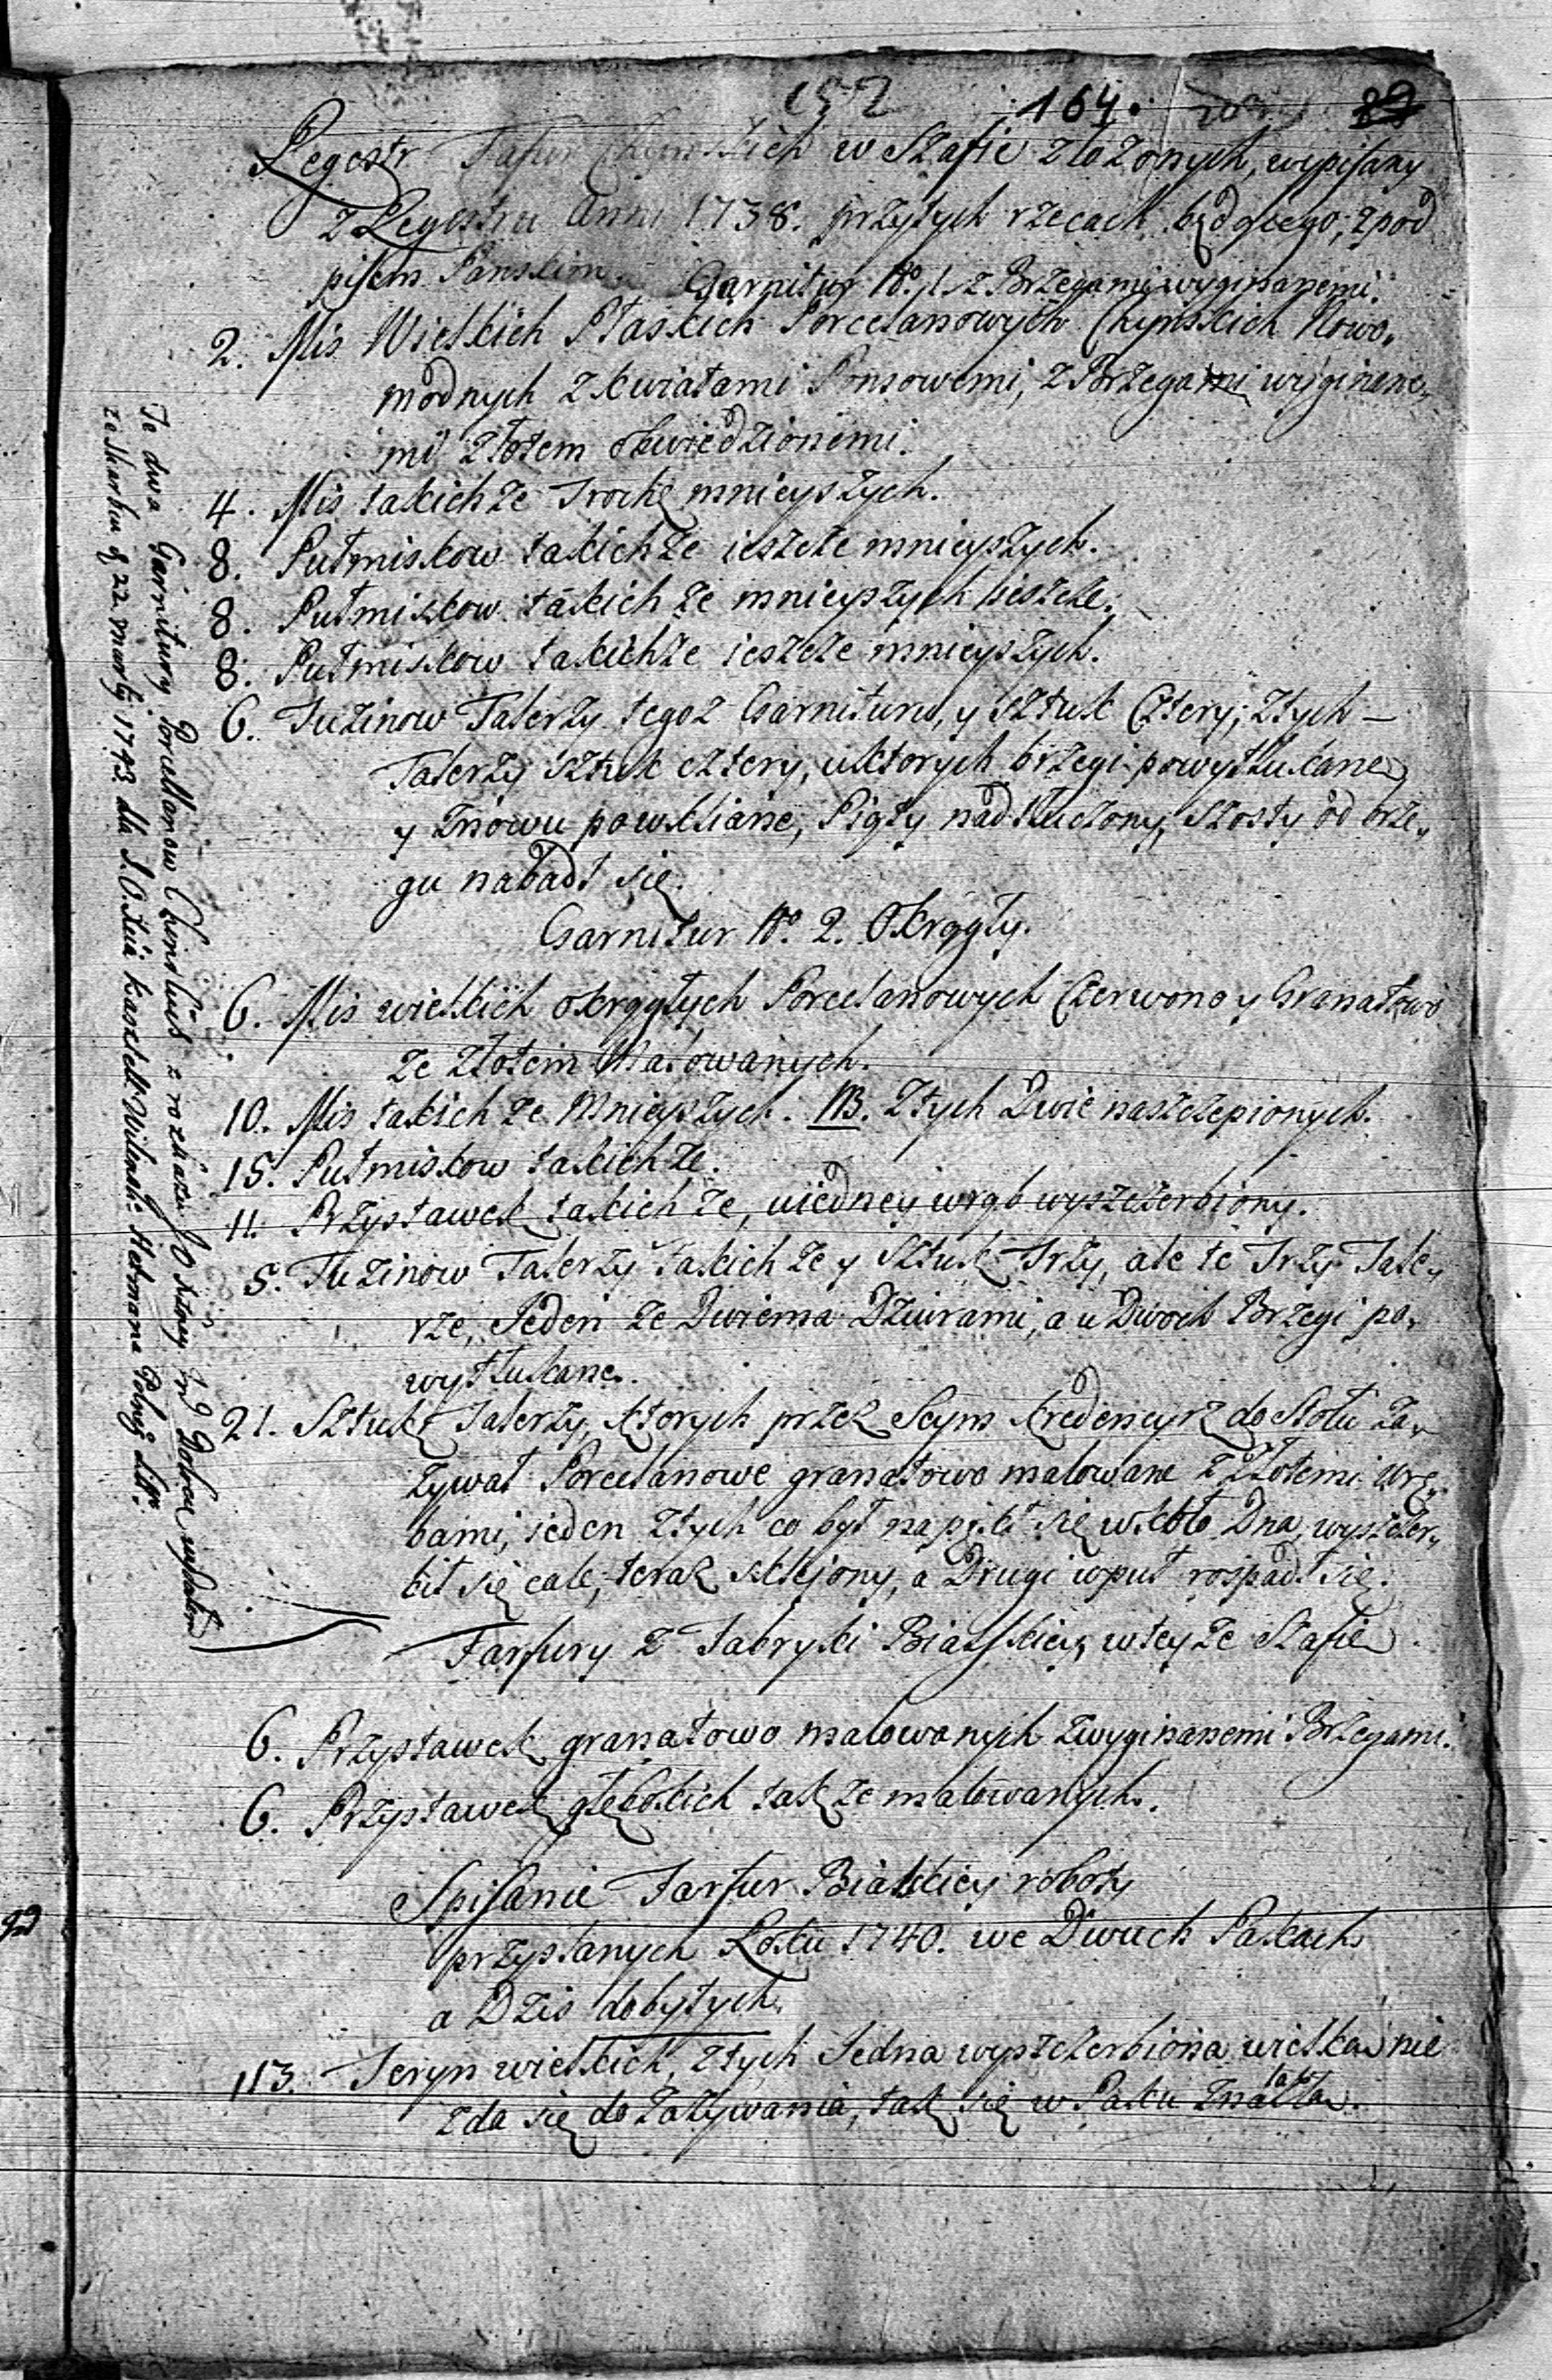 152 164. 89
Regestr Farfur Chynskich w Szafie złożonych, wypisany
z Regestru Anni 1738. przytych rzecach będącego, z pod
pisem Panskim. Garnitur No. 1 z Brzegami wyginanemi.
2. Mis Wielkich Płaskich Porcelanowych Chynskich Nowo,
modnych z kwiatami Ponsowemi, z Brzegami wyginane,
mi złotem obwiedzionemi.
4. Mis takichże troche mnieyszych.
8. Pułmiskow takichże ieszcze mnieyszych.
8. Pułmiskow takichże mnieyszych ieszcze.
8. Pułmiskow takichże ieszcze mnieyszych.
6. Tuzinow Talerzy tegoż Garnituru, y Sztuk Cztery; ztych –
Talerzy sztuk cztery, uktorych brzegi powytłukane
y znowu powkliane, Piąty nadtłuczony, szosty od brze,
gu nabadł się.
Garnitur No. 2. Okrągły.
6. Mis wielkich okrągłych Porcelanowych Czerwono y Granatowo
ze złotem Malowanych.
10. Mis takichże Mnieyszych. NB. Ztych Dwie naszczepionych.
15. Pułmiskow takichże.
11. Przystawek takichże, uiedney wrąb wyszczerbiony.
5. Tuzinow Talerzy takichże y Sztuk Trzy, ale te Trzy Tale,
rze, Jeden ze Dwiema Dziurami, a u Dwoch Brzegi po,
wytłukane.
21. Sztuk Talerzy, ktorych przez Seym Kredencyrz do Stołu za,
zywał Porcelanowe granatowo malowane z Złotemi wrę,
bami, jeden ztych co był napękł się wkoło Dna, wyszczer,
bił się cale, teraz sklejony, a Drugi wpuł rospadł się.
Farfury z Fabryki Bialskiey, wteyże Szafie
6. Przystawek granatowo malowanych zwyginanemi Brzegami.
6. Przystawek głębokich także malowanych.
Spisanie Farfur Bialskiey roboty
przysłanych Roku 1740. we Dwuch Pakach
a Dziś dobytych.
113. Teryn wielkich, ztych Jedna wyszczerbiona wielka nie
zda się do Zażywania, tak się w Paku Znalazła.
Te dwa Garnitury Porcellanow Chinskich z roskazu JO Xcey Jmć Dobr. wydałem
ze Skarbu d. 22. Martij 1743 dla J.O. Xcia Kasztell. Wilensk. Hetmana Polne Litgo.